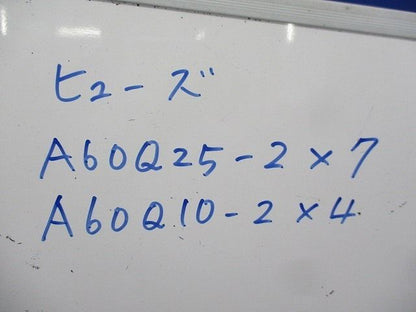 ヒューズ
A60Q25-2×7
A60Q10-2×4